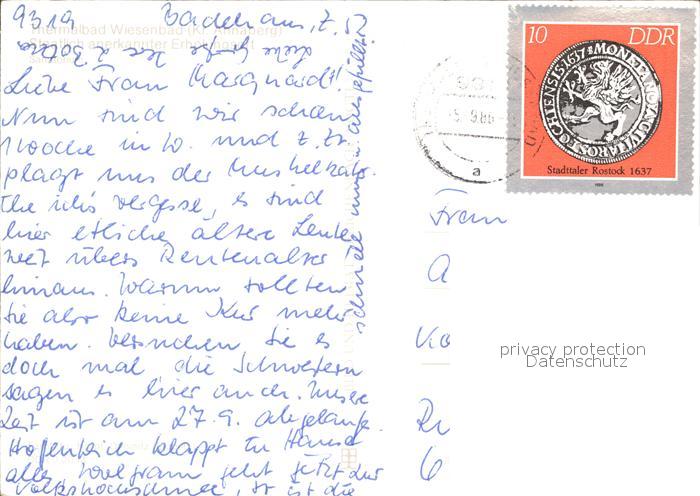 9319 Badehaus, Z. 57
Thermalbad Wiesenbad (Kr. Annaberg)
Staatlich anerkannter Erholungsort
Liebe Grüße
Liebe Frau Marquardt!
Nun sind wir schon
Woche in W. und z. Zt.
plagt uns der Muskelkater.
Ehe ich's vergesse, es sind
hier etliche ältere Leute
weit übers Rentenalter
hinaus. Warum sollten
Sie also keine Kur mehr
haben. Versuchen Sie es
doch mal die Schwestern
sagen es hier auch. Unsere
Zeit ist am 27.9. abgelaufen.
Hoffentlich klappt zu Hause
alles Wolfram geht jetzt zur
Volkshochschule, er ist die
10 DDR
MONETA NO
ROSTOCHIENSIS 1637
Stadttaler Rostock 1637
1986
9.86
a
Frau
A
6
privacy protection
Datenschutz